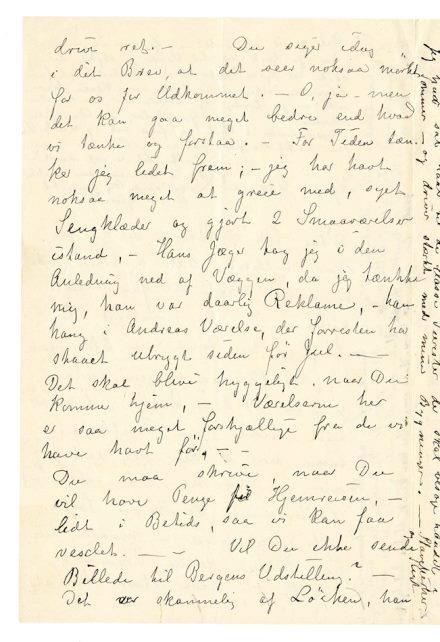 drive ret. — Du siger idag
i dit Brev, at det seer noksaa mörkt
for os for Udkommet. — O, ja — men
det kan gaa meget bedre end hvad
vi tænke og forstaa. — For Tiden tæn-
ker jeg lidet frem; — jeg har havt
noksaa meget at greie med, syet
Sengklæder og gjort 2 Smaaværelser
istand, — Hans Jæger tog jeg i den
Anledning ned af Væggen, da jeg tænkte
mig, han var daarlig Reklame, — han
hang i Andreas Værelse, der forresten har
staaet ubrygt siden för Jul. —
Det skal blive hyggeligt, naar Du
komme hjem, — Værelserne her
er saa meget forskjællige fra de vi
have havt för, — —
Du maa skrive, naar Du
vil have Penge Hjemreisen, —
lidt i Betids, saa vi kan faa
vexlet. — — Vil Du ikke sende
Billede til Bergens Udstilling? —
Det var skammelig af Löchen, han